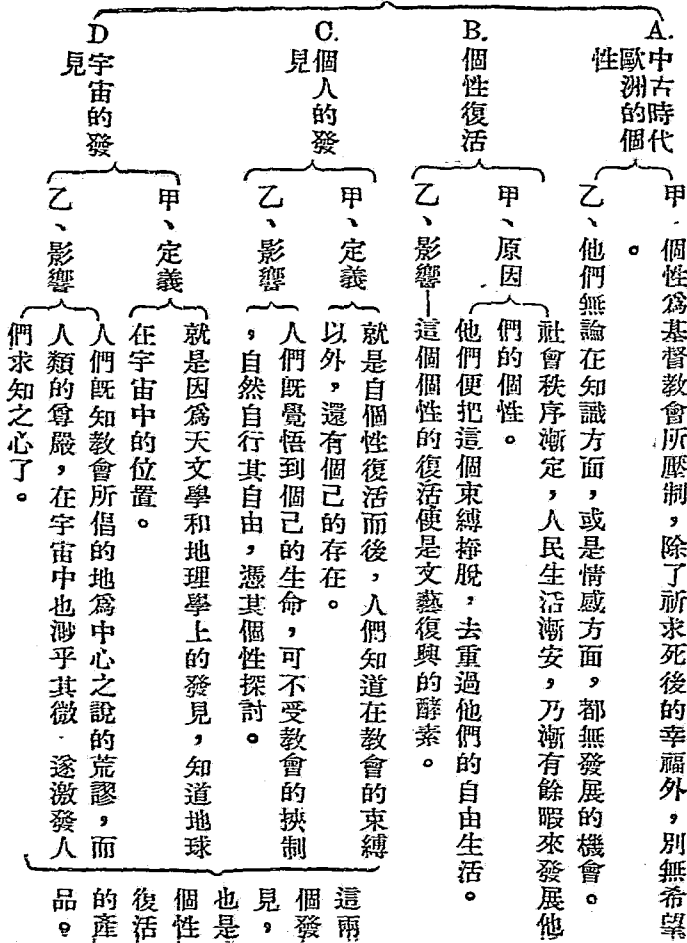 A.中古時代
歐洲的個
性
甲、個性爲基督教會所壓制,除了祈求死後的幸福外,別無希望
。
乙、他們無論在知識方面,或是情感方面,都無發展的機會。
B.個性復活
甲、原因
社會秩序漸定,人民生活漸安,乃漸有餘暇來發展他
們的個性。
他們便把這個束縛掙脫,去重過他們的自由生活。
乙、影響—這個個性的復活便是文藝復興的酵素。
C.個人的發
見
甲、定義
就是自個性復活而後,人們知道在教會的束縛
以外,還有個己的存在。
乙、影響
人們既覺悟到個己的生命,可不受教會的挾制
,自然自行其自由,憑其個性探討。
D宇宙的發
見
甲、定義
就是因爲天文學和地理學上的發見,知道地球
在宇宙中的位置。
乙、影響
人們既知教會所倡的地爲中心之說的荒謬,而
人類的尊嚴,在宇宙中也渺乎其微.遂激發人
們求知之心了。
這兩
個發
見,
也是
個性
復活
的產
品。